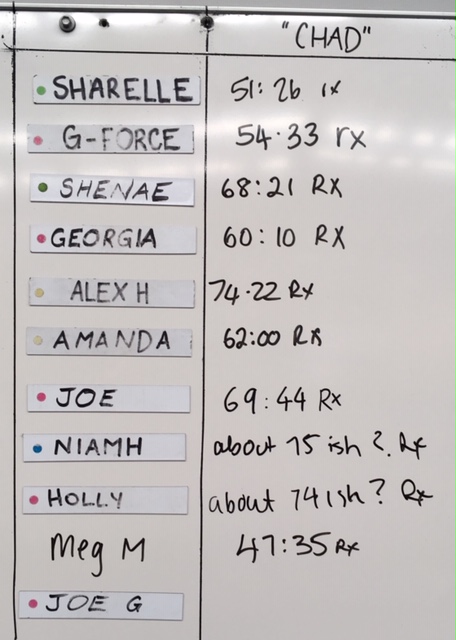 "CHAD"
SHARELLE 51:26 rx
G-FORCE 54.33 rx
SHENAE 68:21 RX
GEORGIA 60:10 RX
ALEX H 74.22 Rx
AMANDA 62:00 Rx
JOE 69:44 Rx
NIAMH about 75 ish ?. Rx
HOLLY about 74 ish? Rx
Meg M 47:35 Rx
JOE G